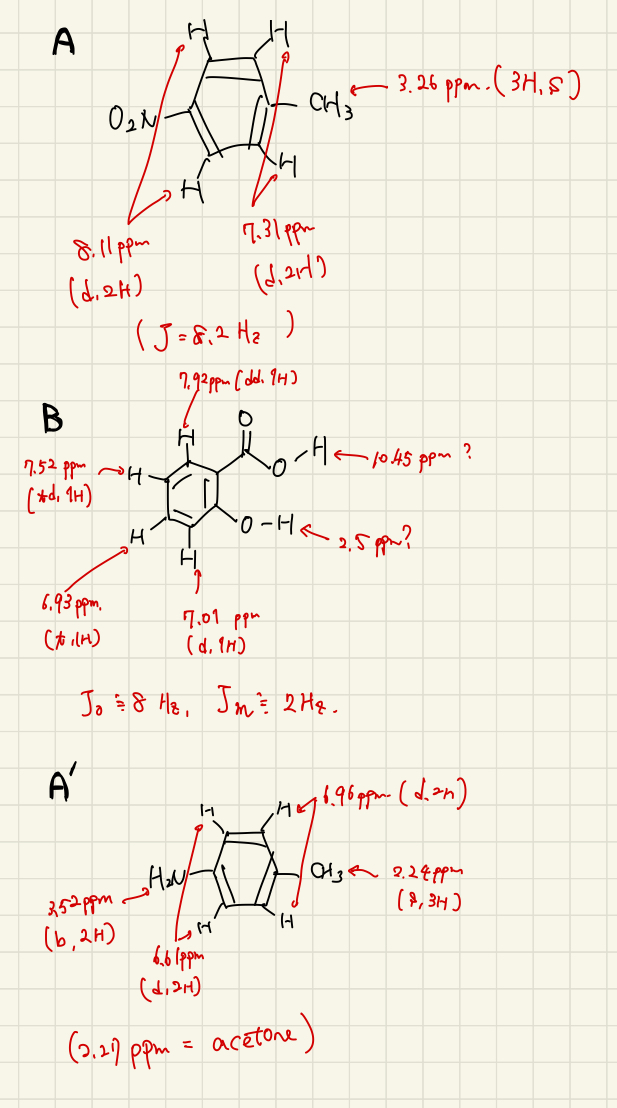 A
H H
O₂N CH₃ 3.26 ppm. (3H, s)
H H
8.11 ppm
(d, 2H)
7.31 ppm
(d, 2H)
(J = 8.2 Hz )
7.92 ppm (dd, 1H)
B
O
H H 10.45 ppm ?
7.52 ppm H O
(td, 1H)
H O-H 2.5 ppm?
H
6.93 ppm.
(t, 1H)
7.01 ppm
(d, 1H)
Jo ≒ 8 Hz, Jm ≒ 2 Hz.
A'
H H 6.96 ppm (d, 2H)
H₂N CH₃
3.52 ppm
(b, 2H)
2.24 ppm
(s, 3H)
H H
6.61 ppm
(d, 2H)
ppm = acetone)